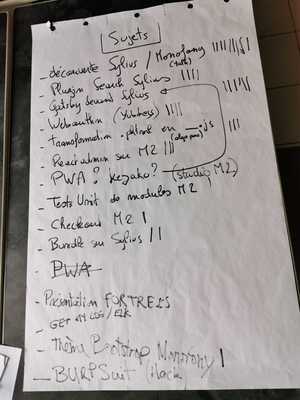 Sujets
- découverte Sylius / Monofony
(task)
- Plugin Search Sylius
- Gatsby devant Sylius
- Webauthn (Yubikeys)
- transformation .phtml en .js
- React admin sur M2
- PWA? kezako? (studio M2)
- Tests Unit de modules M2
- Checkout M2
- Bundle sur Sylius
- PWA
- Présentation FORTRESS
- GET EN LOG / ELK
- Thème Bootstrap Monofony
- BURP Suit (Hack)